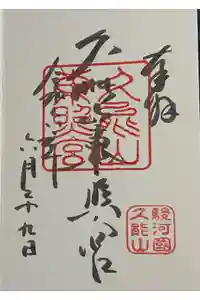 奉拝
久能山東照宮
令和
六月二十九日
久能山
東照宮
駿河國
久能山